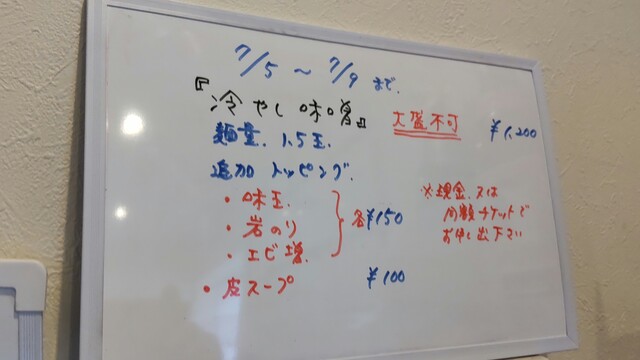 7/5 ~ 7/9 まで.
『冷やし味噌』 大盛不可 ¥1,200
麺量. 1.5玉.
追加トッピング.
・味玉.
・岩のり
・エビ増.
各¥150
・皮スープ ¥100
※現金. 又は
同額チケットで
お申し出下さい